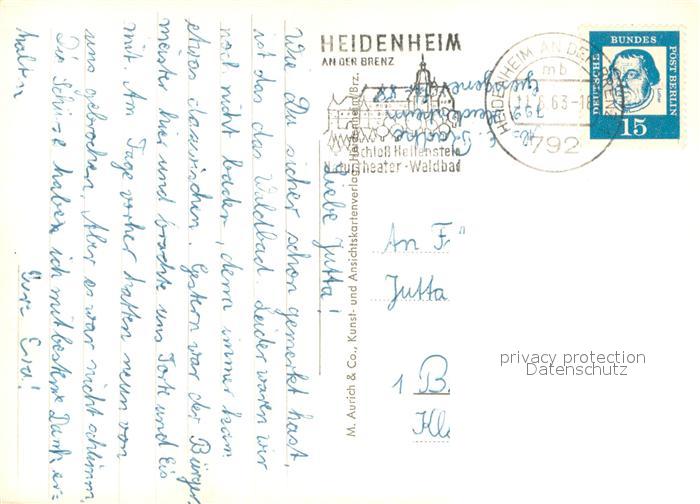 HEIDENHEIM
AN DER BRENZ
Schloß Hellenstein
Naturtheater-Waldbad
HEIDENHEIM AN DER BRENZ
mb
63-1
792
DEUTSCHE BUNDES POST BERLIN
Luther
15
792 Heidenheim
Liebe Jutta!
Wie Du sicher schon gemerkt hast,
ist das das Waldbad. Leider waren wir
noch nicht baden, denn immer kam
etwas dazwischen. Gestern war der Bürger
meister hier und brachte uns Torte und Eis
mit. Am Tage vorher hatten neun von
uns gebrochen. Aber es war nicht schlimm.
Die Schürze haben ich mit bestem Dank er=
halten
Eure Eva!
M. Aurich & Co., Kunst- und Ansichtskartenverlag, Heidenheim/Brz.
An F
Jutta
1 B
Kl
privacy protection
Datenschutz